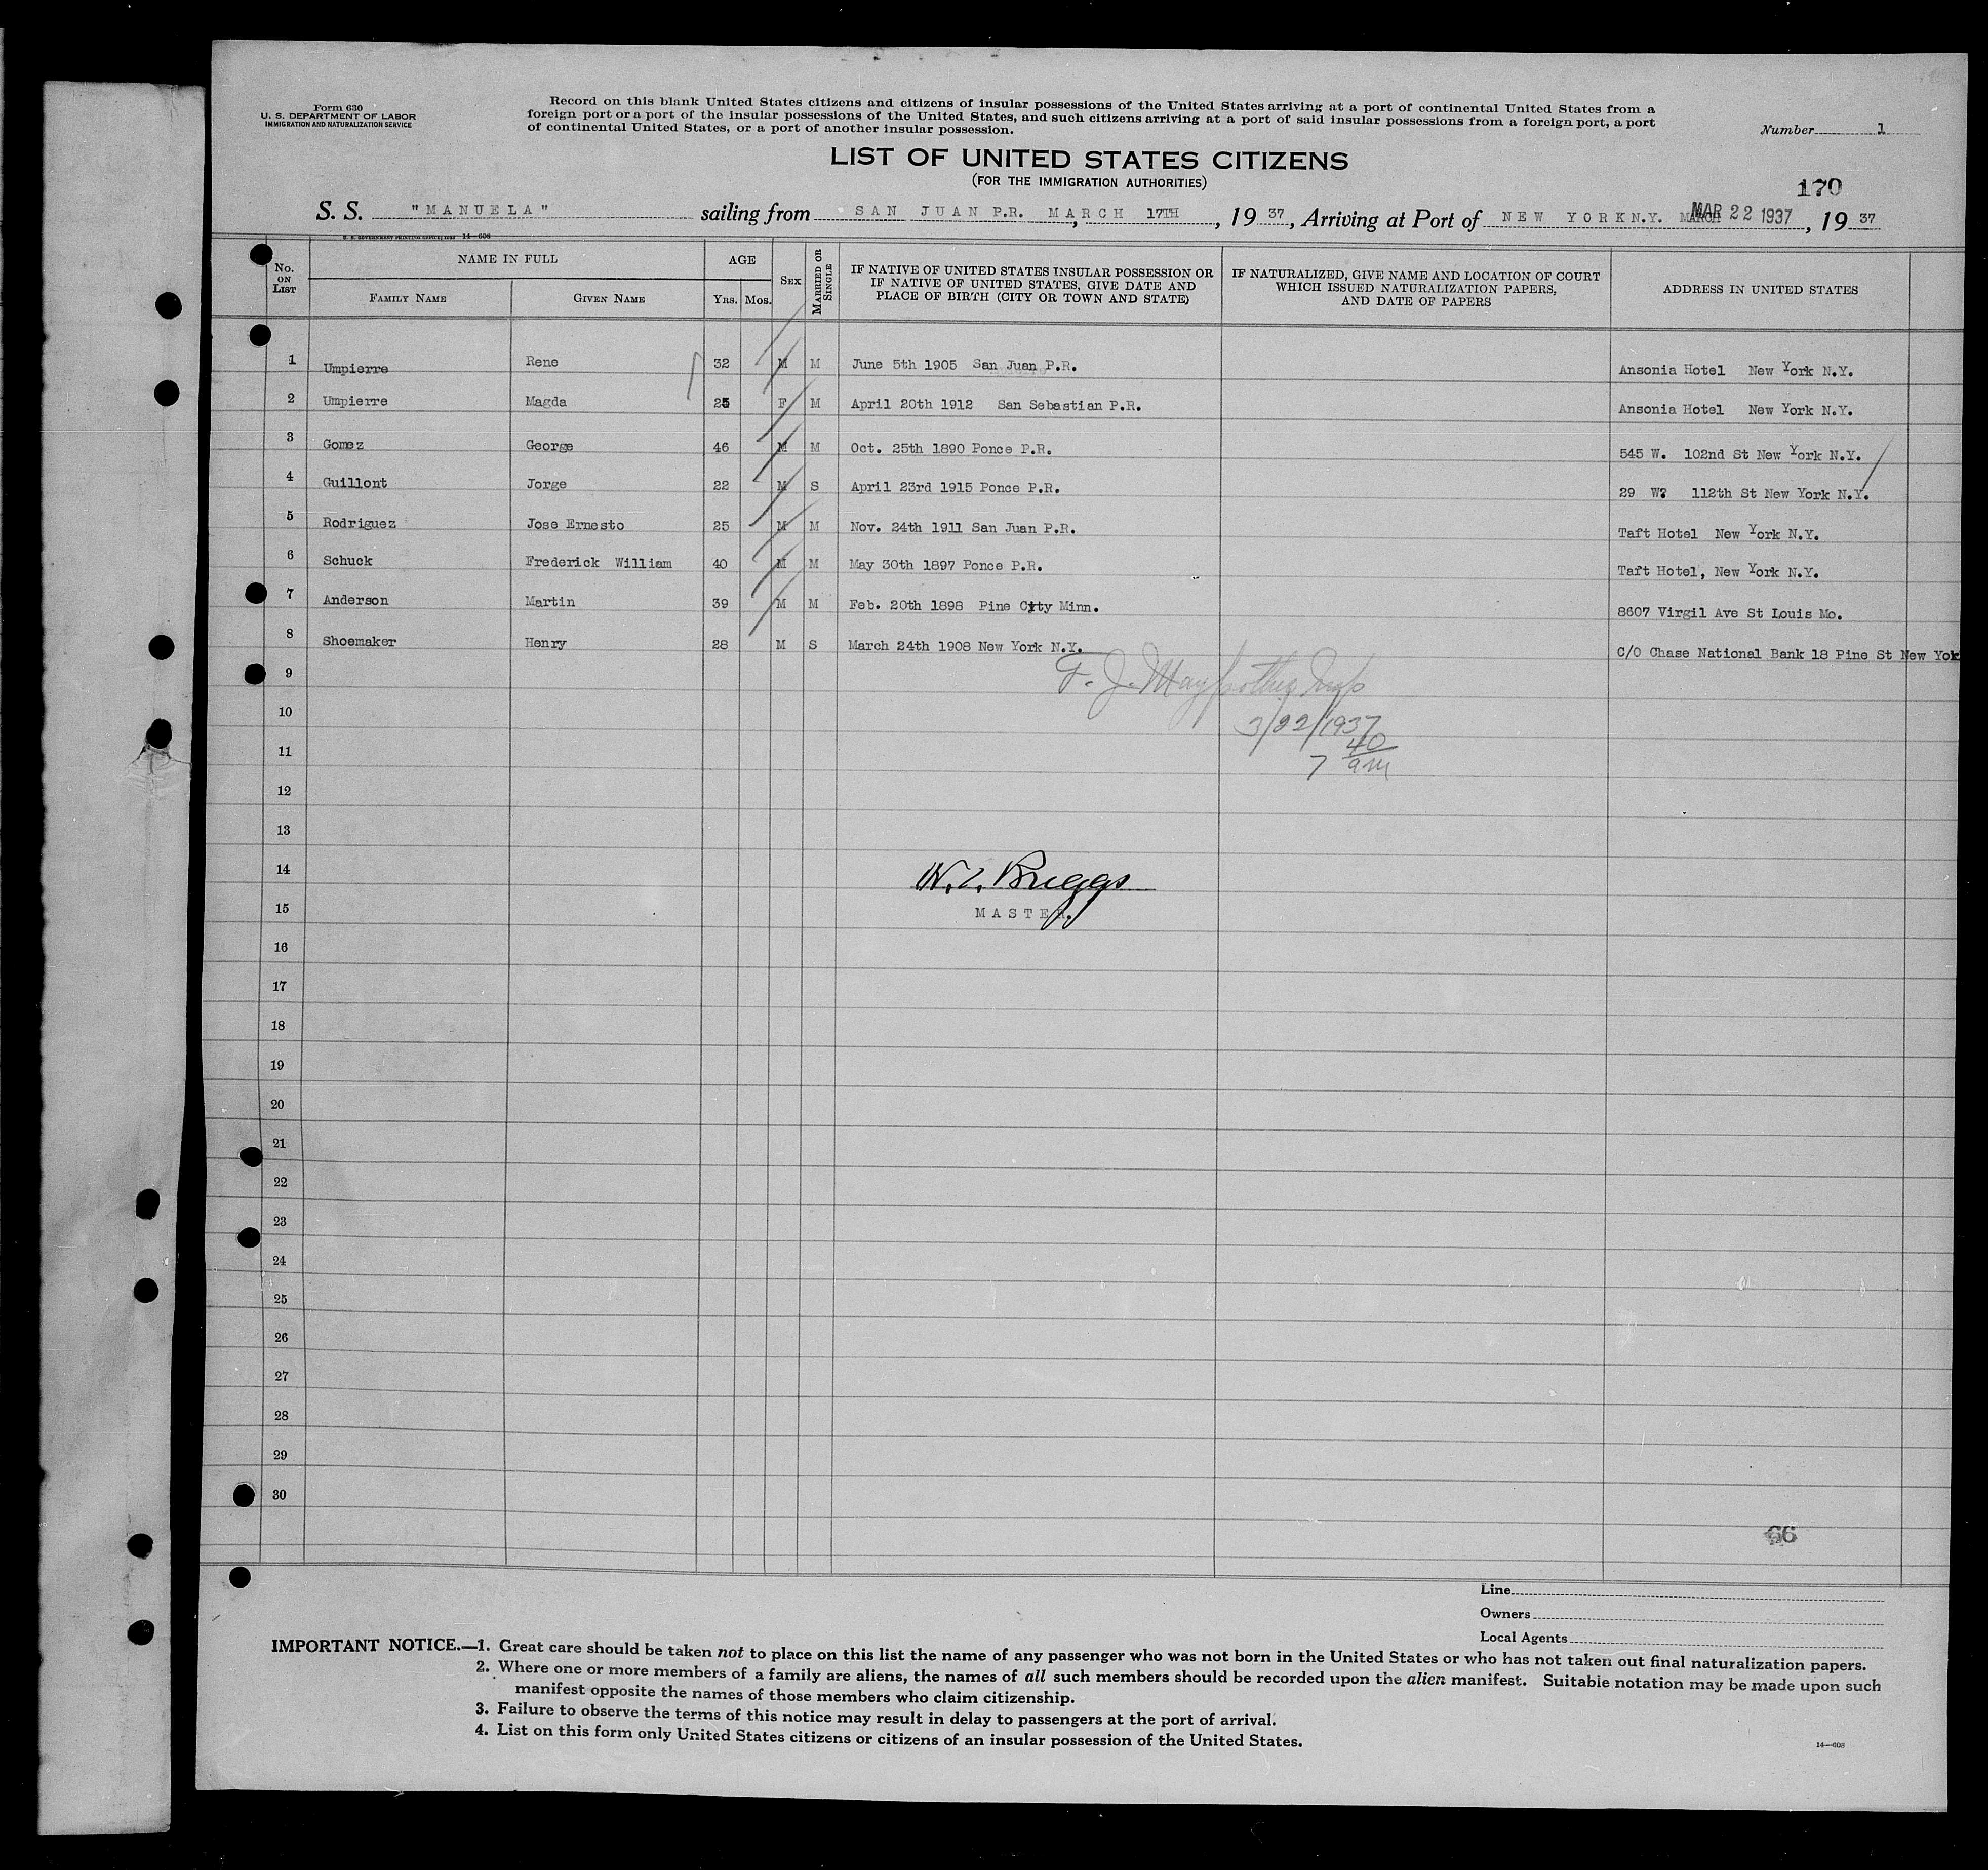 Form 630
U. S. DEPARTMENT OF LABOR
IMMIGRATION AND NATURALIZATION SERVICE
Record on this blank United States citizens and citizens of insular possessions of the United States arriving at a port of continental United States from a
foreign port or a port of the insular possessions of the United States, and such citizens arriving at a port of said insular possessions from a foreign port, a port
of continental United States, or a port of another insular possession.
Number 1
LIST OF UNITED STATES CITIZENS
(FOR THE IMMIGRATION AUTHORITIES)
170
S. S. "MANUELA" sailing from SAN JUAN P.R. MARCH 17TH, 1937, Arriving at Port of NEW YORK N.Y. MARCH MAR 22 1937, 1937
U. S. GOVERNMENT PRINTING OFFICE: 14—608
No. ON LIST
NAME IN FULL
FAMILY NAME
GIVEN NAME
AGE
YRS. MOS.
SEX
MARRIED OR SINGLE
IF NATIVE OF UNITED STATES INSULAR POSSESSION OR
IF NATIVE OF UNITED STATES, GIVE DATE AND
PLACE OF BIRTH (CITY OR TOWN AND STATE)
IF NATURALIZED, GIVE NAME AND LOCATION OF COURT
WHICH ISSUED NATURALIZATION PAPERS,
AND DATE OF PAPERS
ADDRESS IN UNITED STATES
1 Umpierre Rene 32 M M June 5th 1905 San Juan P.R. Ansonia Hotel New York N.Y.
2 Umpierre Magda 25 F M April 20th 1912 San Sebastian P.R. Ansonia Hotel New York N.Y.
3 Gomez George 46 M M Oct. 25th 1890 Ponce P.R. 545 W. 102nd St New York N.Y.
4 Guillont Jorge 22 M S April 23rd 1915 Ponce P.R. 29 W? 112th St New York N.Y.
5 Rodriguez Jose Ernesto 25 M M Nov. 24th 1911 San Juan P.R. Taft Hotel New York N.Y.
6 Schuck Frederick William 40 M M May 30th 1897 Ponce P.R. Taft Hotel, New York N.Y.
7 Anderson Martin 39 M M Feb. 20th 1898 Pine City Minn. 8607 Virgil Ave St Louis Mo.
8 Shoemaker Henry 28 M S March 24th 1908 New York N.Y. C/O Chase National Bank 18 Pine St New Yok
9
F. J.
10
3/22/1937
11
7 40 am
12
13
14
W. Briggs
15
MASTER.
16
17
18
19
20
21
22
23
24
25
26
27
28
29
30
66
Line
Owners
Local Agents
IMPORTANT NOTICE.—1. Great care should be taken not to place on this list the name of any passenger who was not born in the United States or who has not taken out final naturalization papers.
2. Where one or more members of a family are aliens, the names of all such members should be recorded upon the alien manifest. Suitable notation may be made upon such
manifest opposite the names of those members who claim citizenship.
3. Failure to observe the terms of this notice may result in delay to passengers at the port of arrival.
4. List on this form only United States citizens or citizens of an insular possession of the United States.
14—608